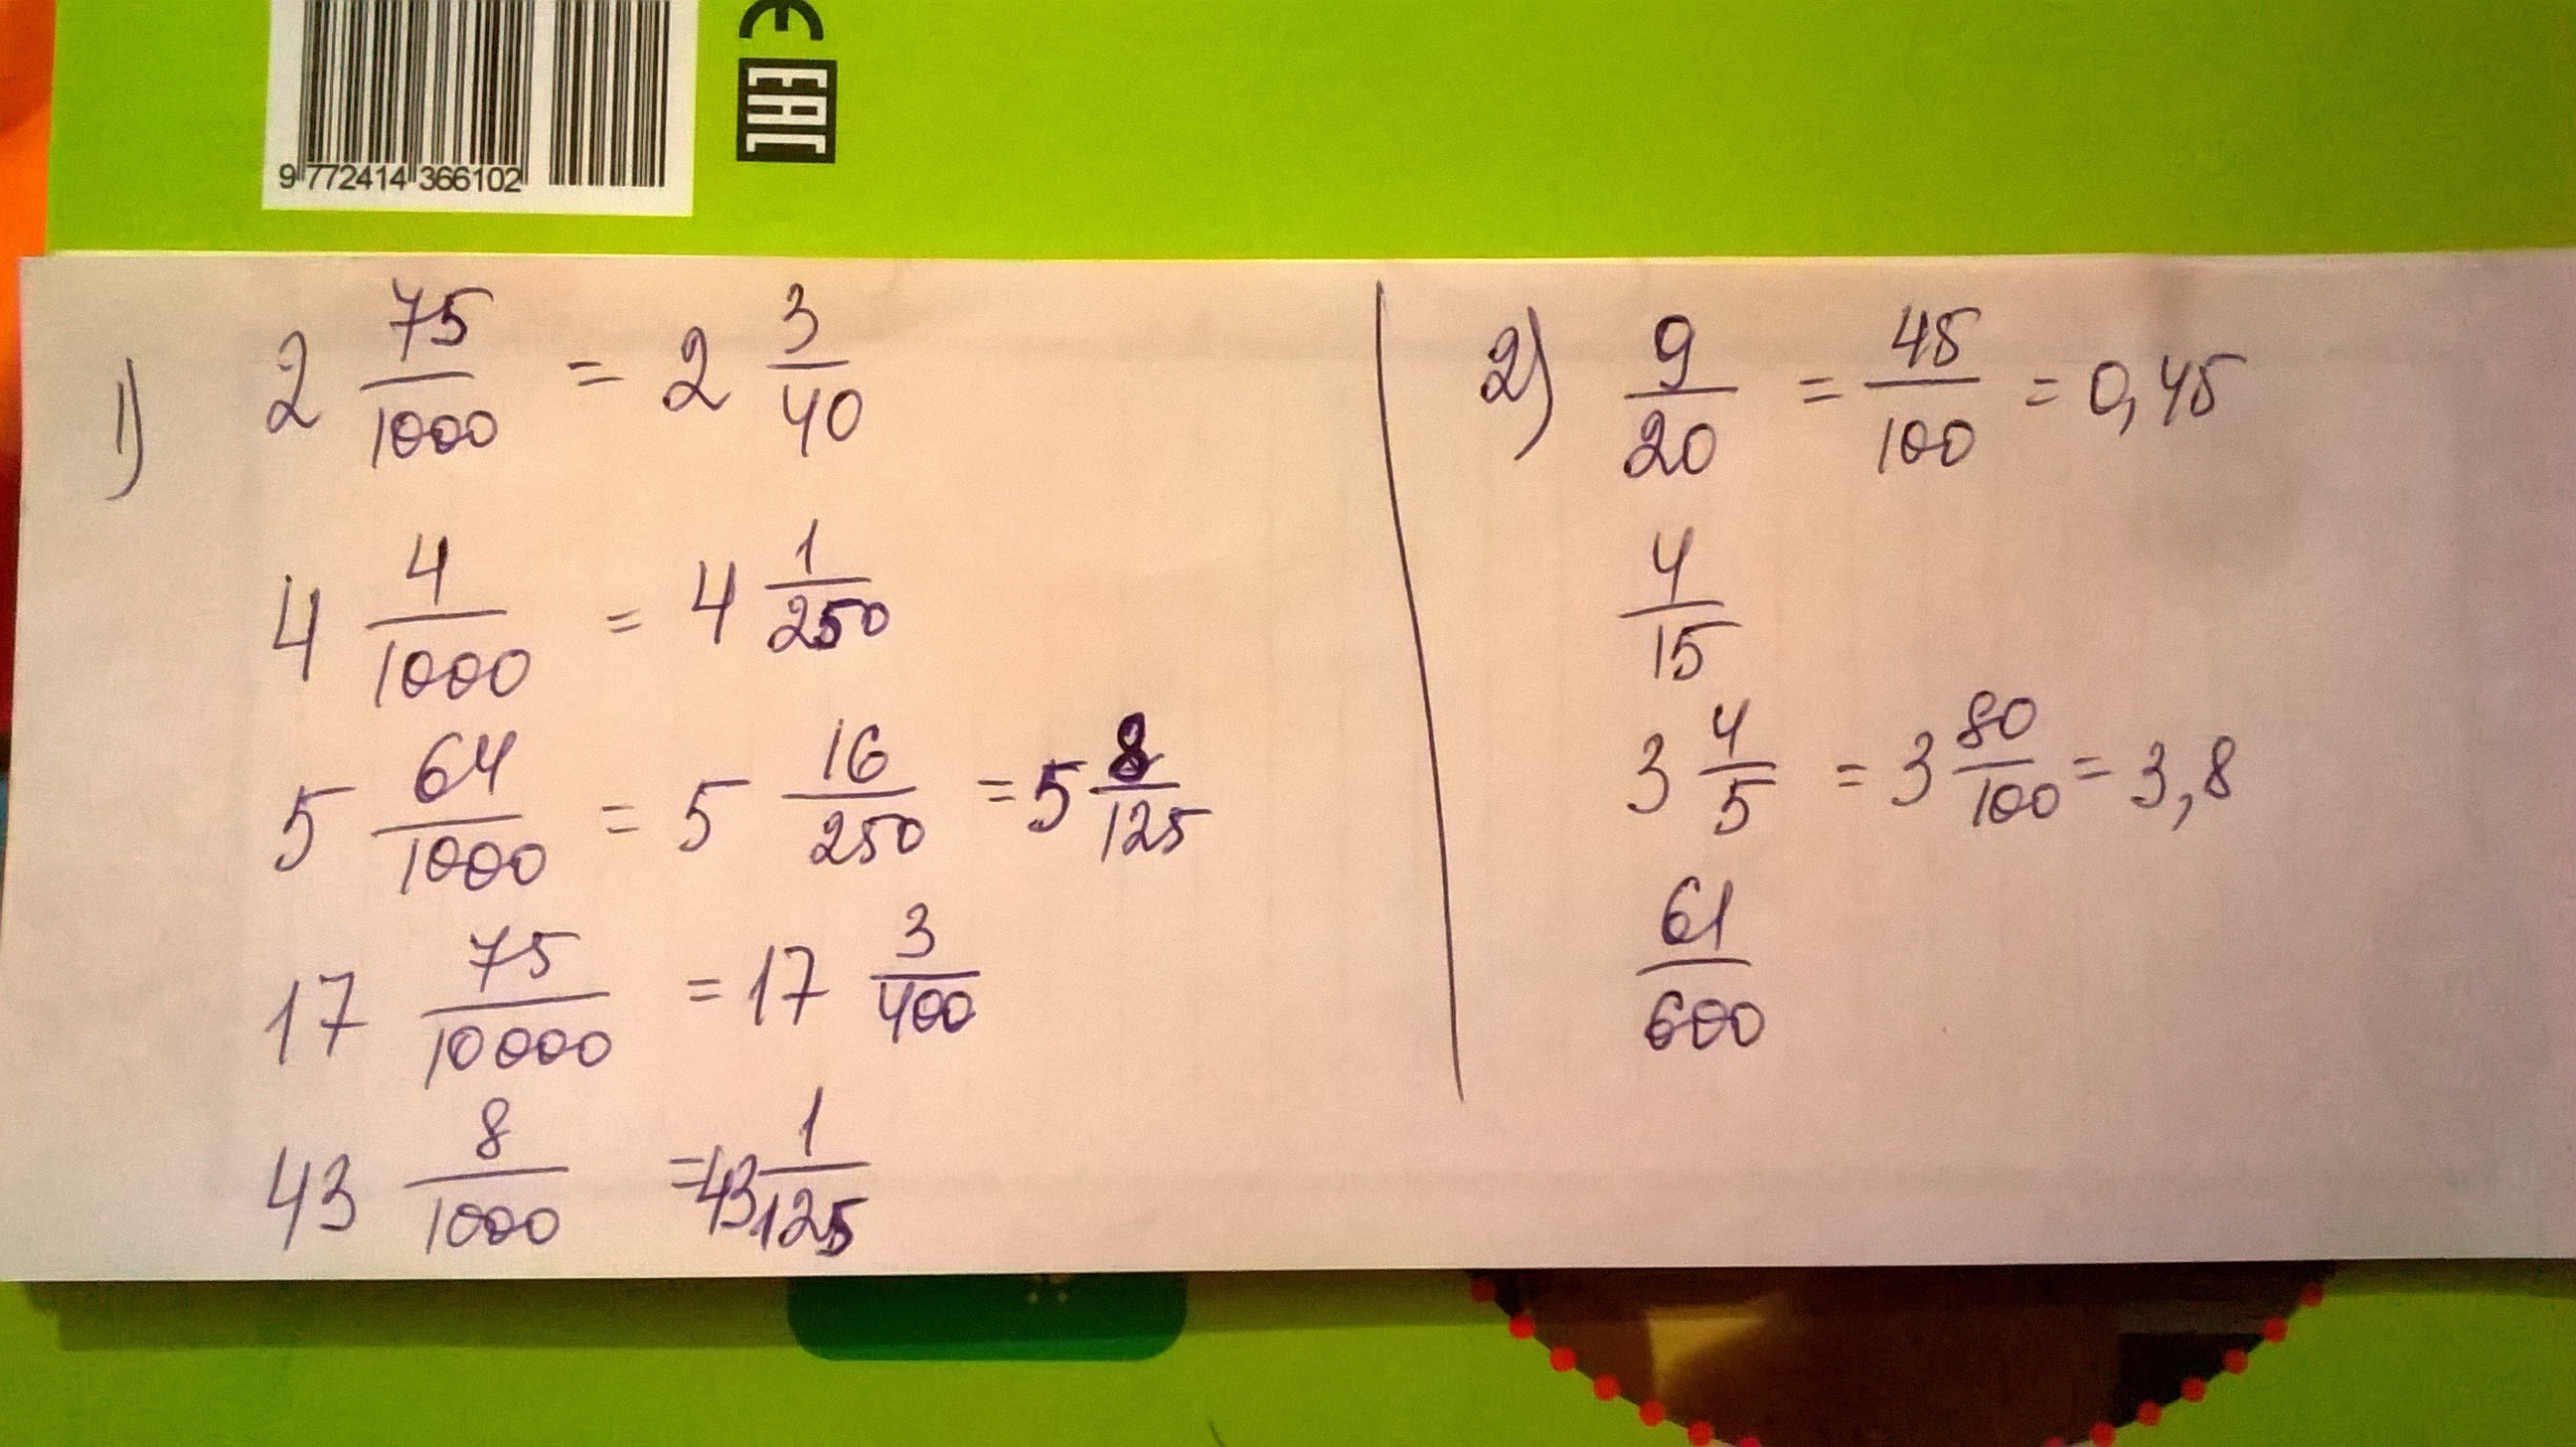 9 772414 366102
CE
EAC
1) 2 75/1000 = 2 3/40
4 4/1000 = 4 1/250
5 64/1000 = 5 16/250 = 5 8/125
17 75/10000 = 17 3/400
43 8/1000 = 43 1/125
2) 9/20 = 45/100 = 0,45
4/15
3 4/5 = 3 80/100 = 3,8
61/600